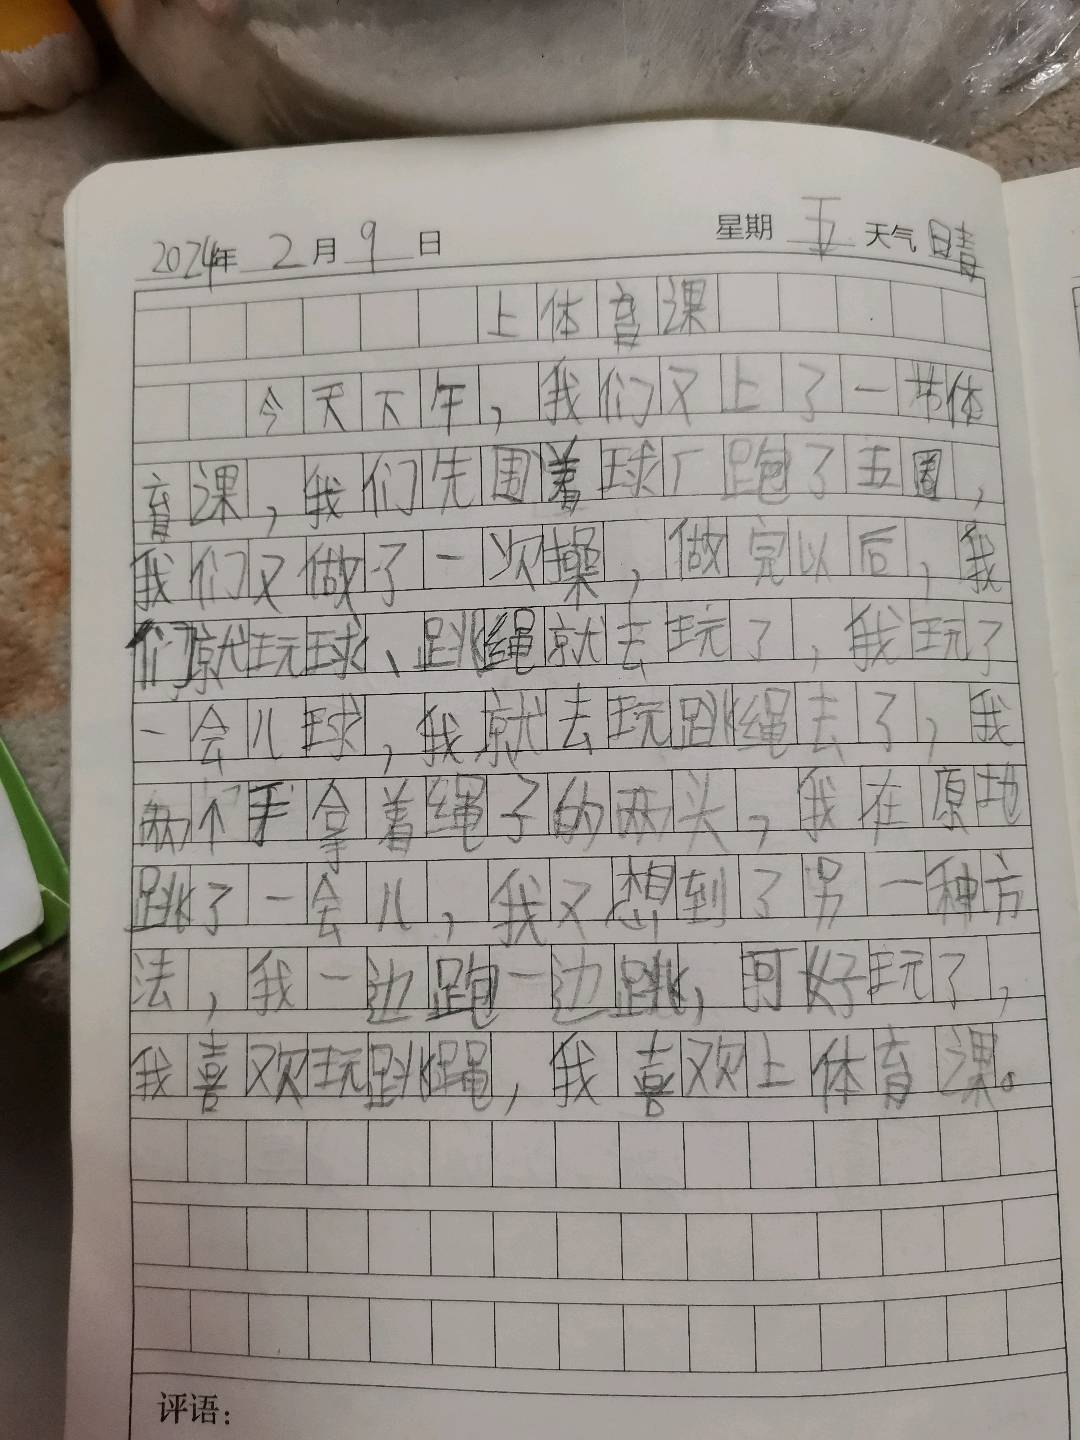 2024年 2 月 9 日 星期 五 天气 晴
上体育课
今天下午，我们又上了一节体
育课，我们先围着球厂跑了五圈，
我们又做了一次操，做完以后，我
们就玩球、跳绳就去玩了，我玩了
一会儿球，我就去玩跳绳去了，我
两个手拿着绳子的两头，我在原地
跳了一会儿，我又想到了另一种方
法，我一边跑一边跳，可好玩了，
我喜欢玩跳绳，我喜欢上体育课。
评语：